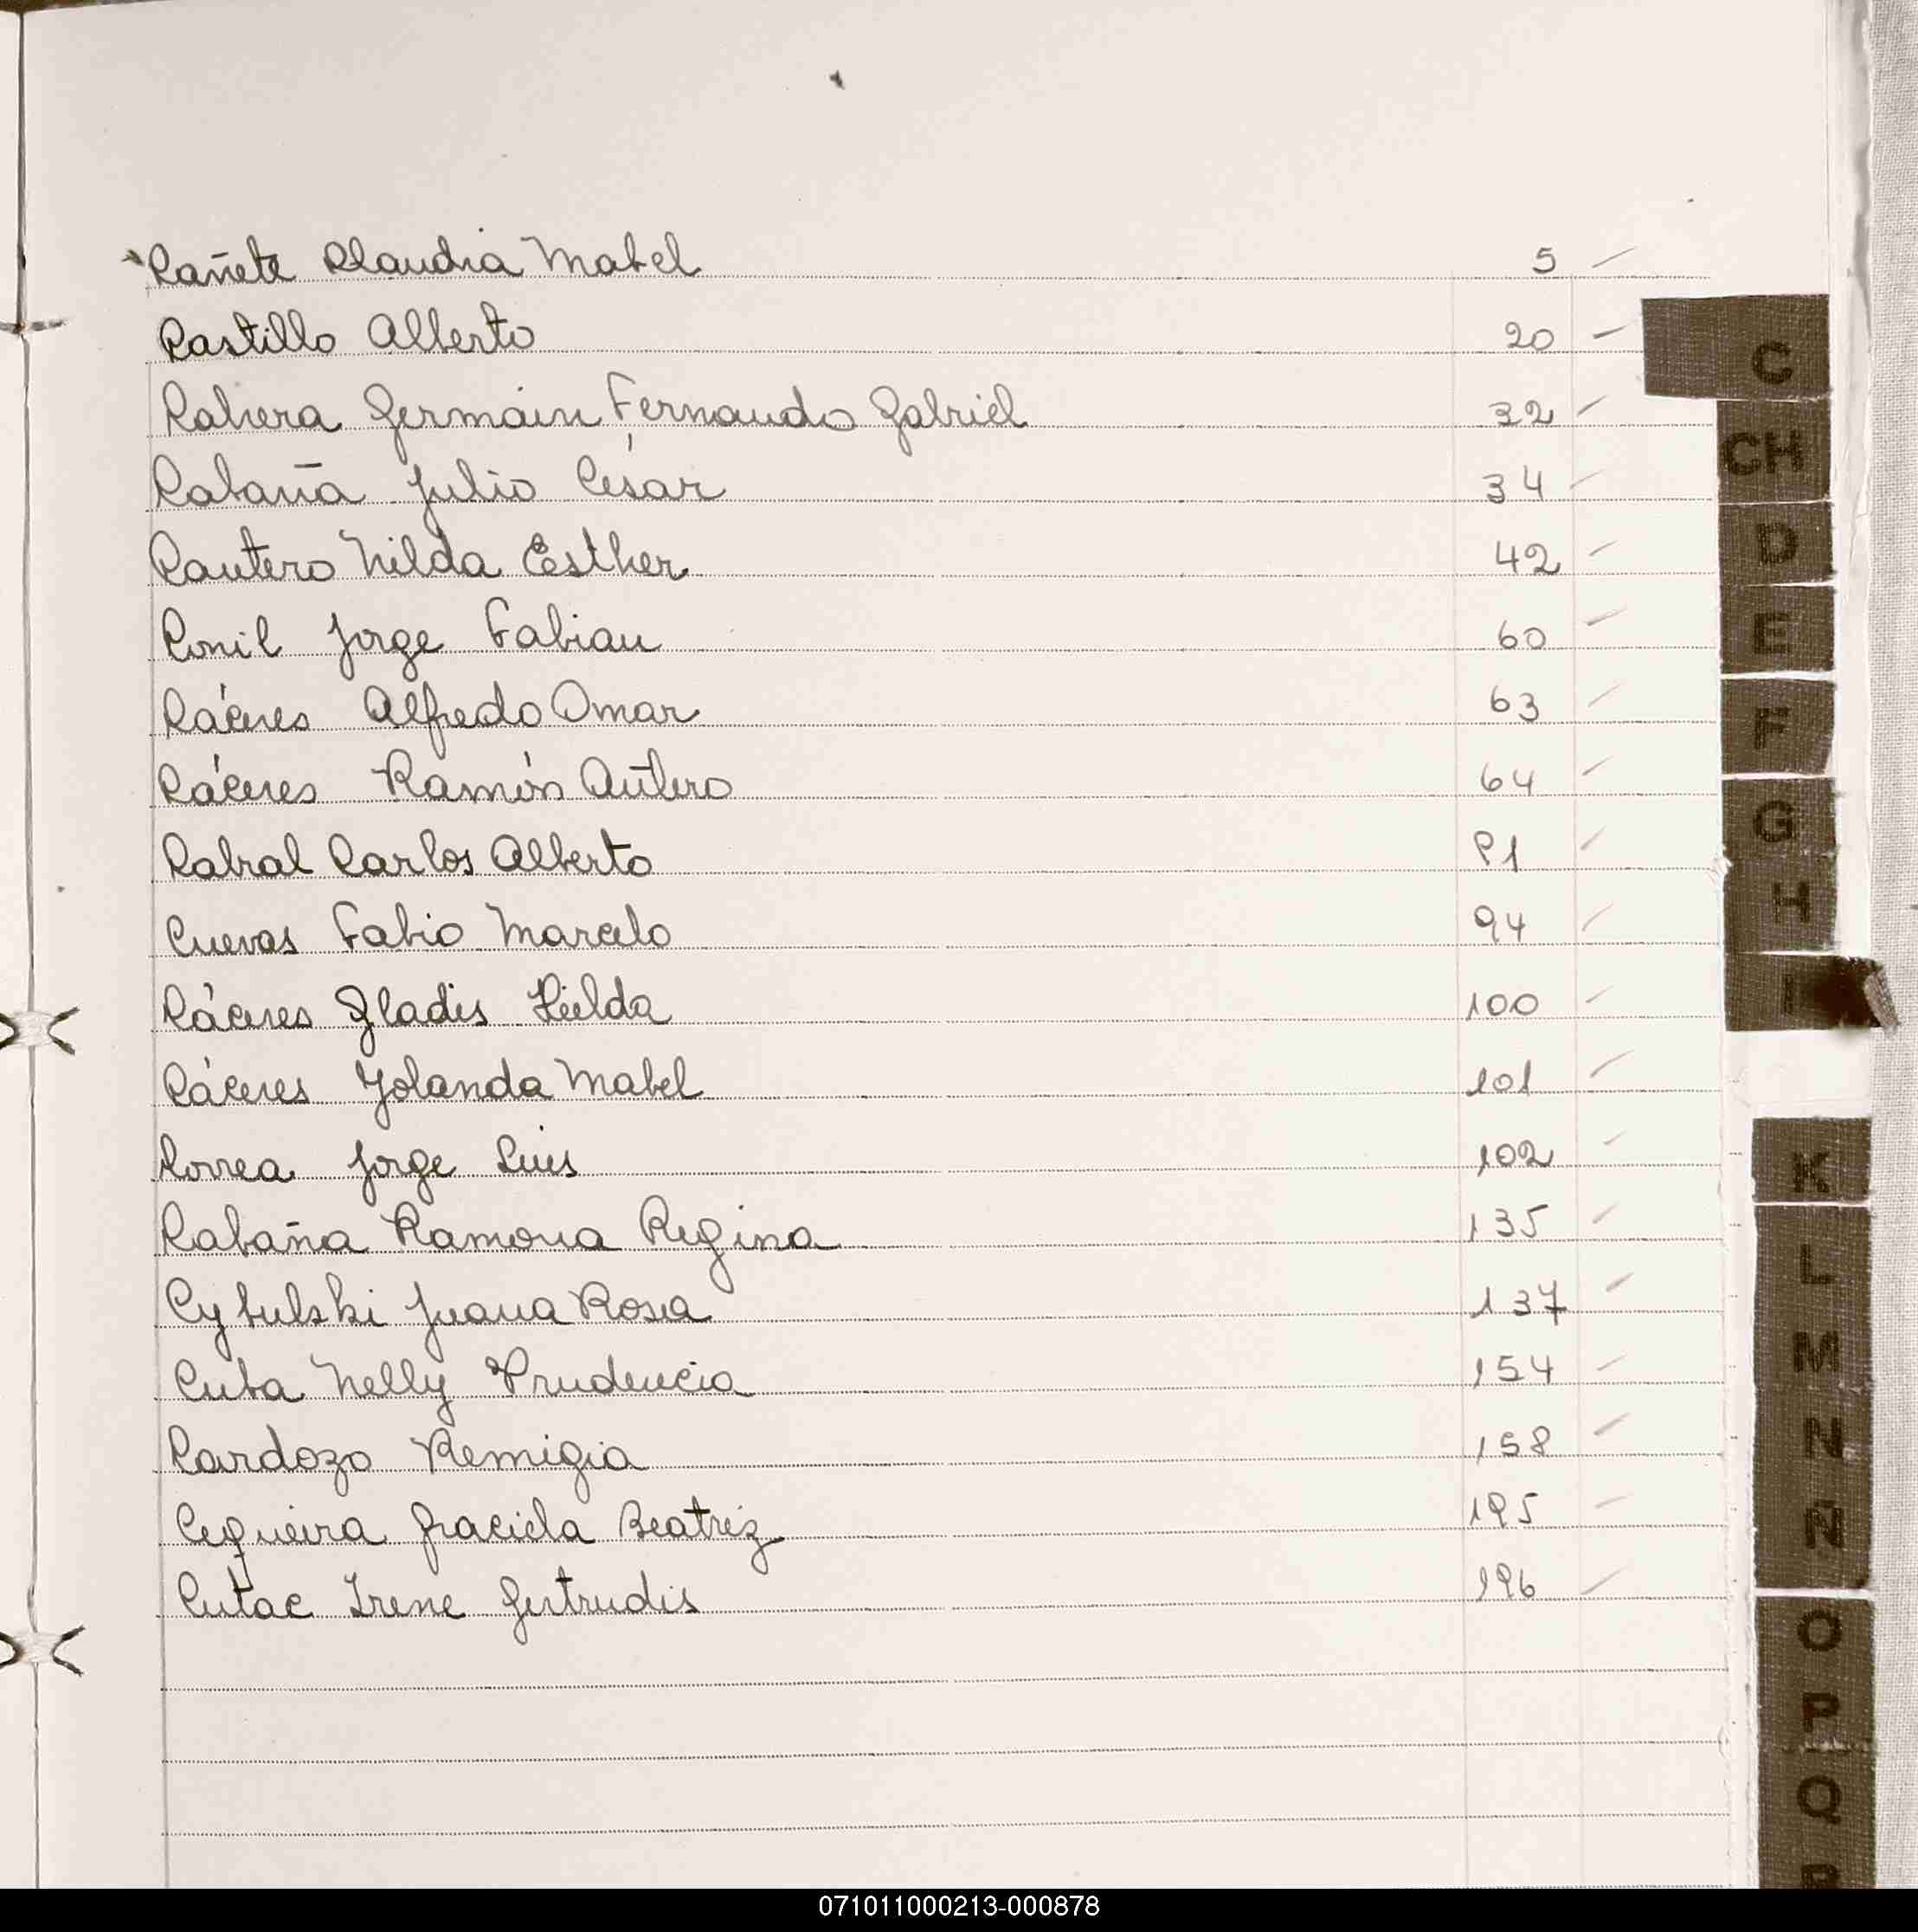 Cañete Claudia Mabel 5
Castillo Alberto 20
Cahera Germain Fernando Gabriel 32
Cabaña Julio César 34
Cantero Nilda Esther 42
Conil Jorge Fabian 60
Cáceres Alfredo Omar 63
Cáceres Ramón Antero 64
Cabral Carlos Alberto 81
Cuevas Fabio Marcelo 94
Cáceres Gladis Hilda 100
Cáceres Yolanda Mabel 101
Correa Jorge Luis 102
Cabaña Ramona Regina 135
Cybulski Juana Rosa 137
Cuba Nelly Prudencia 154
Cardozo Remigia 158
Cequeira Graciela Beatriz 185
Cutac Irene Gertrudis 186
C
CH
D
E
F
G
H
I
K
L
M
N
Ñ
O
P
Q
071011000213-000878